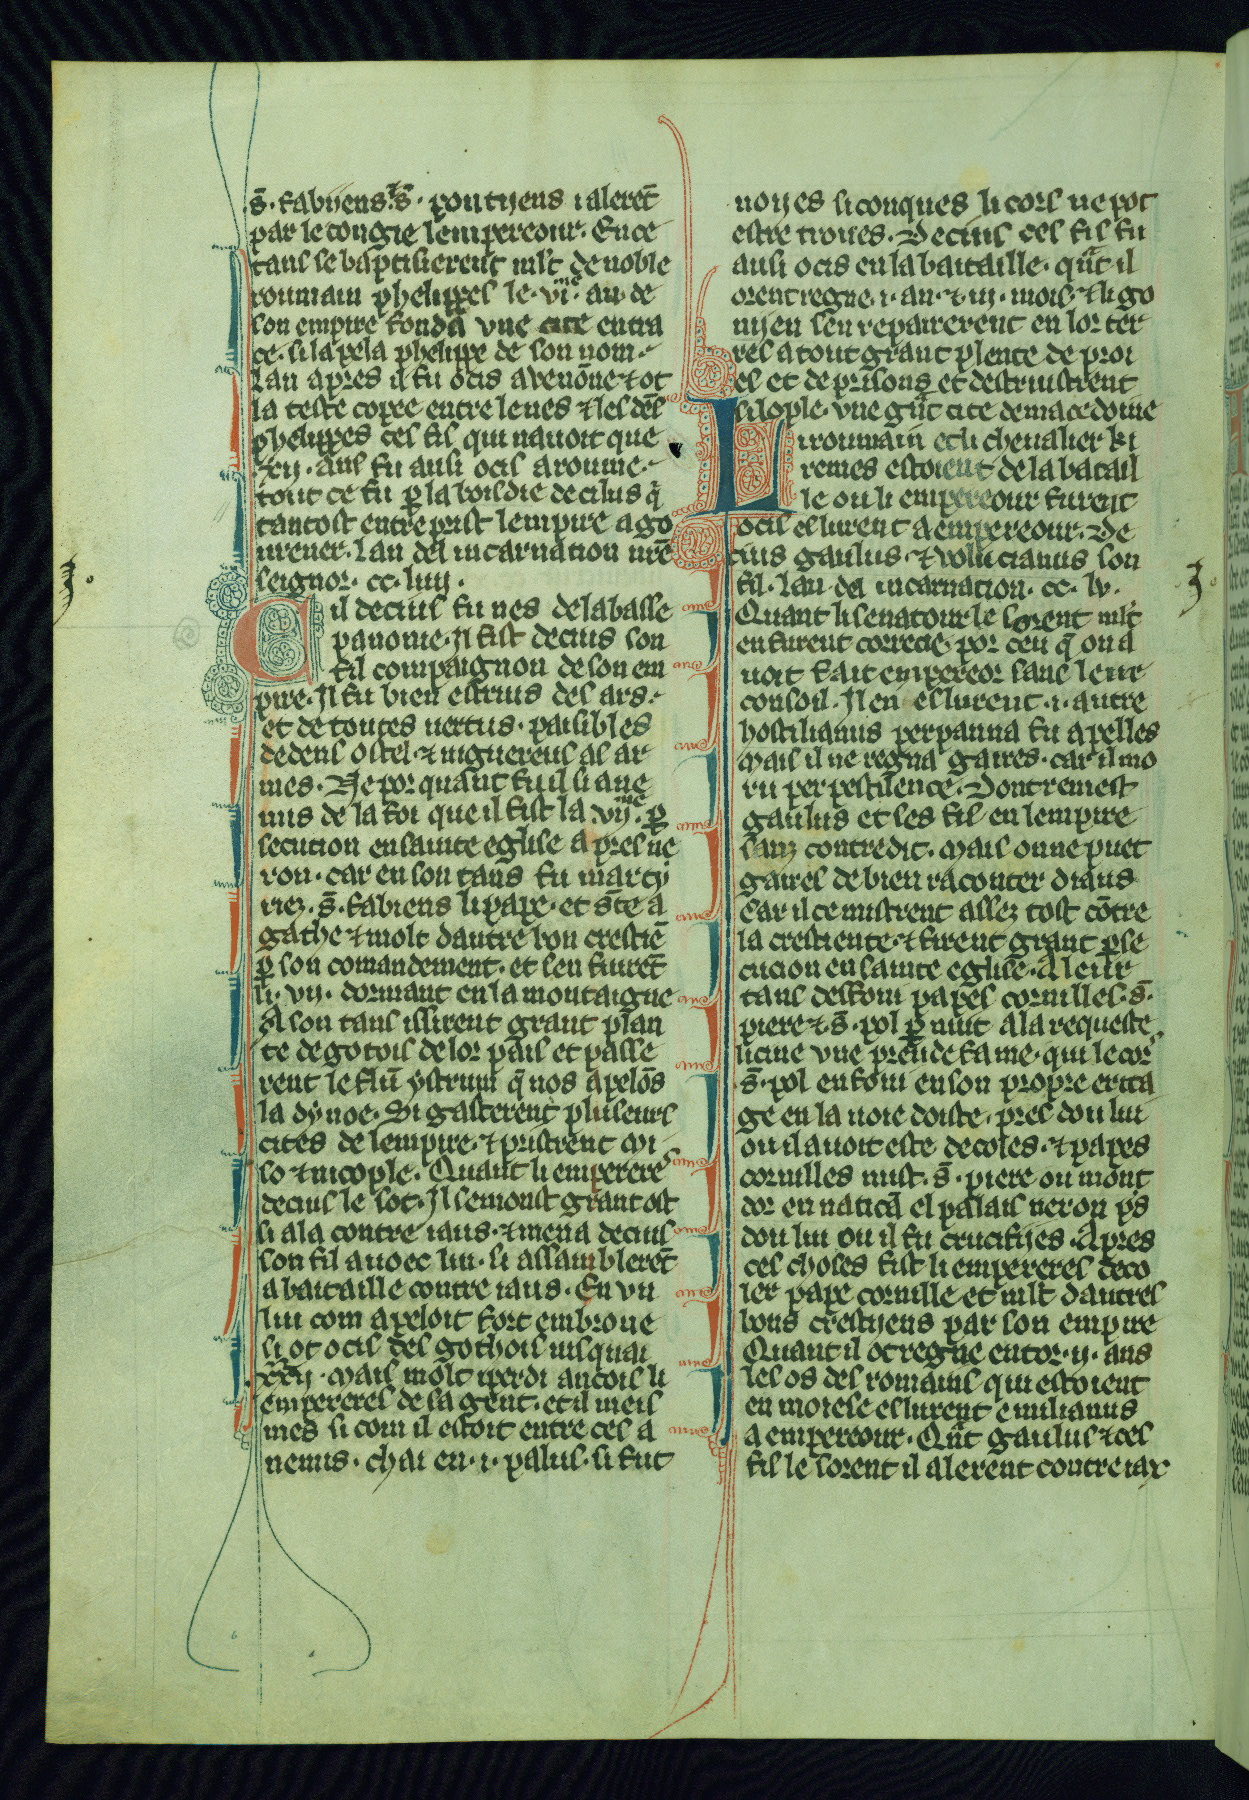 s̄. fabyens. ⁊ s̄. pontyens i aleret̄
par le congie lempereour. En ce
tans se baptisierent ml̄t de noble
roumain phelippes le .viᵐᵉ. an de
son empire fonda vne cite en tra
ce. si lapela phelippe de son nom.
Lan apres il fu ocis a veronne ⁊ ot
la teste copee entre le nes ⁊ les dēs
phelippes ces fils qui nauoit que
.xij. ans fu ausi ocis a roume.
tout ce fu ꝑ la boisdie decius q̄
tantost entreprist lempire a go
urener. Lan del incarnation nr̄e
seignor. cc. liiij.
Cil decius fu nes de la basse
panonie. Il fist decius son
fil compaignon de son em
pire. Il fu bien estruis des ars.
et de toutes uertus. paisibles
dedens ostel ⁊ uiguereus as ar
mes. Ne por quant fu il si ane
mis de la foi que il fist la .vijᵐᵉ. ꝑ
secution en sainte eglise apres ne
ron. car en son tans fu marty
riez. s̄. fabiens li pape. et s̄te a
gathe ⁊ molt dautre bon crestiē
ꝑ son comandement. et sen fuiret̄
li. vij. dormant en la montaigne
A son tans issirent grant plan
te de gotois de lor pais et passe
rent le flū ystrum q̄ nos apelōs
la dynoe. Si gasterent pluseurs
cites de lempire. ⁊ pristrent mi
so ⁊ nicople. Quant li empereres
decius le sot. Il semonst grant ost
si ala contre iaus. ⁊ mena decius
son fil auoec lui. si assambleret̄
a bataille contre iaus. En vn
liu com apeloit fort embrone
si ot ocis des gothois iusquai
xxx. mais molt i perdi ancois li
empereres de sa gent. et il meis
mes si com il estoit entre ces a
nemis. chai en .i. palus. si fut
noyes si conques li cors ne pot
estre troues. Decius ces fils fu
ausi ocis en la bataille. qūt il
orent regne .i. an. ⁊ iij. mois. ⁊ li go
nyen sen repairerent en lor ter
res a tout grant plente de proi
es et de prisons et destruistrent
silople. vne gn̄t cite de macedoine
Li roumain et li cheualier ki
remes estoient de la batail
le ou li empereour furent
ocis eslurent a empereour. De
cius gaulus. ⁊ volucianus son
fil. Lan del incarnation. cc. lv.
Quant li senatour le sorent ml̄t
en furent correcie. por ceu q̄ on a
uoit fait empereor sans leur
consoil. Il en eslurent .i. autre
hostilianus perpanna fu apelles
mais il ne regna gaires. car il mo
ru per pestilence. Dont remest
gaulus et ses fils en lempire
sanz contredit. mais on ne puet
gaires de bien raconter diaus
Car il ce mistrent assez tost cōtre
la crestiente. ⁊ firent grant ꝑse
cucion en sainte eglise. A leur
tans deffoui papes cornilles. s̄.
piere ⁊ s̄. pol ꝑ nuit a la requeste
licine vne preude fame. qui le cors
s̄. pol enfoui en son propre erita
ge en la uoie doiste. pres dou liu
ou il auoit este decoles. ⁊ papes
cornilles mist. s̄. piere ou mont
dor en naticā el palais neron ꝑs
dou liu ou il fu crucifijes. Apres
ces choses fist li empereres deco
ler pape cornille et ml̄t dautres
bons crestyens par son empire
Quant il ot regne entor .ij. ans
les os des romains qui estoient
en moiese eslurent emilianus
a empereour. Qūt gaulus ⁊ ces
fils le sorent il alerent contre iax